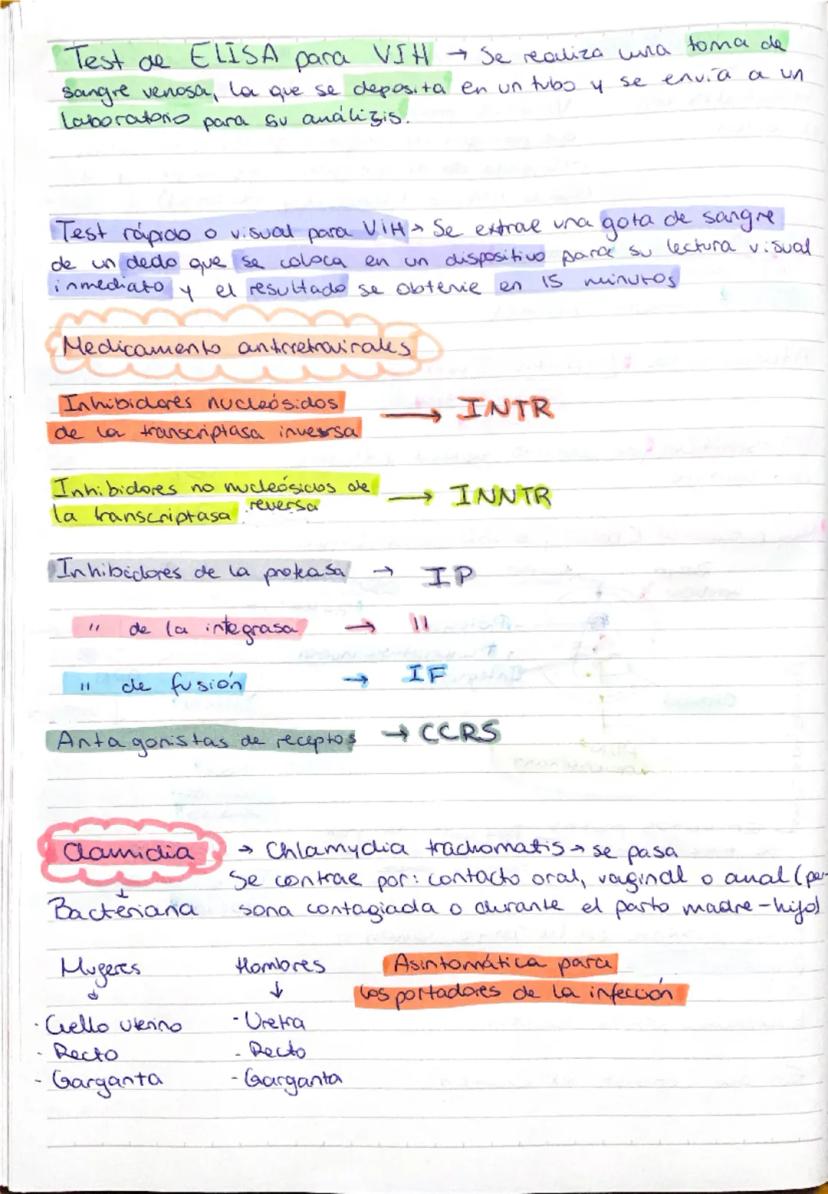 Test de ELISA para VIH → Se realiza una toma de
sangre venosa, la que se deposita en un tubo y se envía a un
laboratorio para su análizis.
Test rápido o visual para VIH → Se extrae una gota de sangre
de un dedo que se coloca en un dispositivo para su lectura visual
inmediato y el resultado se obtenie en 15 minutos
Medicamento antirretrovirales
Inhibidores nucleósidos
de la transcriptasa inversa → INTR
Inhibidores no nucleósidos de
la transcriptasa reversa → INNTR
Inhibidores de la proteasa → IP
" de la integrasa → II
" de fusión → IF
Antagonistas de receptos → CCRS
Clamidia → Chlamydia trachomatis → se pasa
Se contrae por: contacto oral, vaginal o anal (per-
Bacteriana sona contagiada o durante el parto madre-hijo)
Mugeres Hombres Asintomática para
↓ ↓ los portadores de la infección
- Cuello uterino - Uretra
- Recto - Recto
- Garganta - Garganta